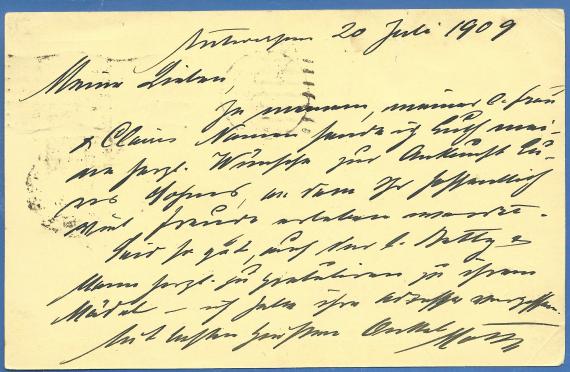 Antwerpen 20 Juli 1909
Meine Lieben,
In meinem, meiner l. Frau
& Claires Namen sende ich Euch mei-
ne herzl. Wünsche zur Ankunft Eu-
res Sohnes, an dem Ihr hoffentlich
viel Freude erleben werdet.
Seid so gut, auch der l. Betty &
Mann herzl. zu gratuliren zu ihrem
Mädel – ich habe ihre Adresse vergessen.
Mit besten Grüssen Onkel